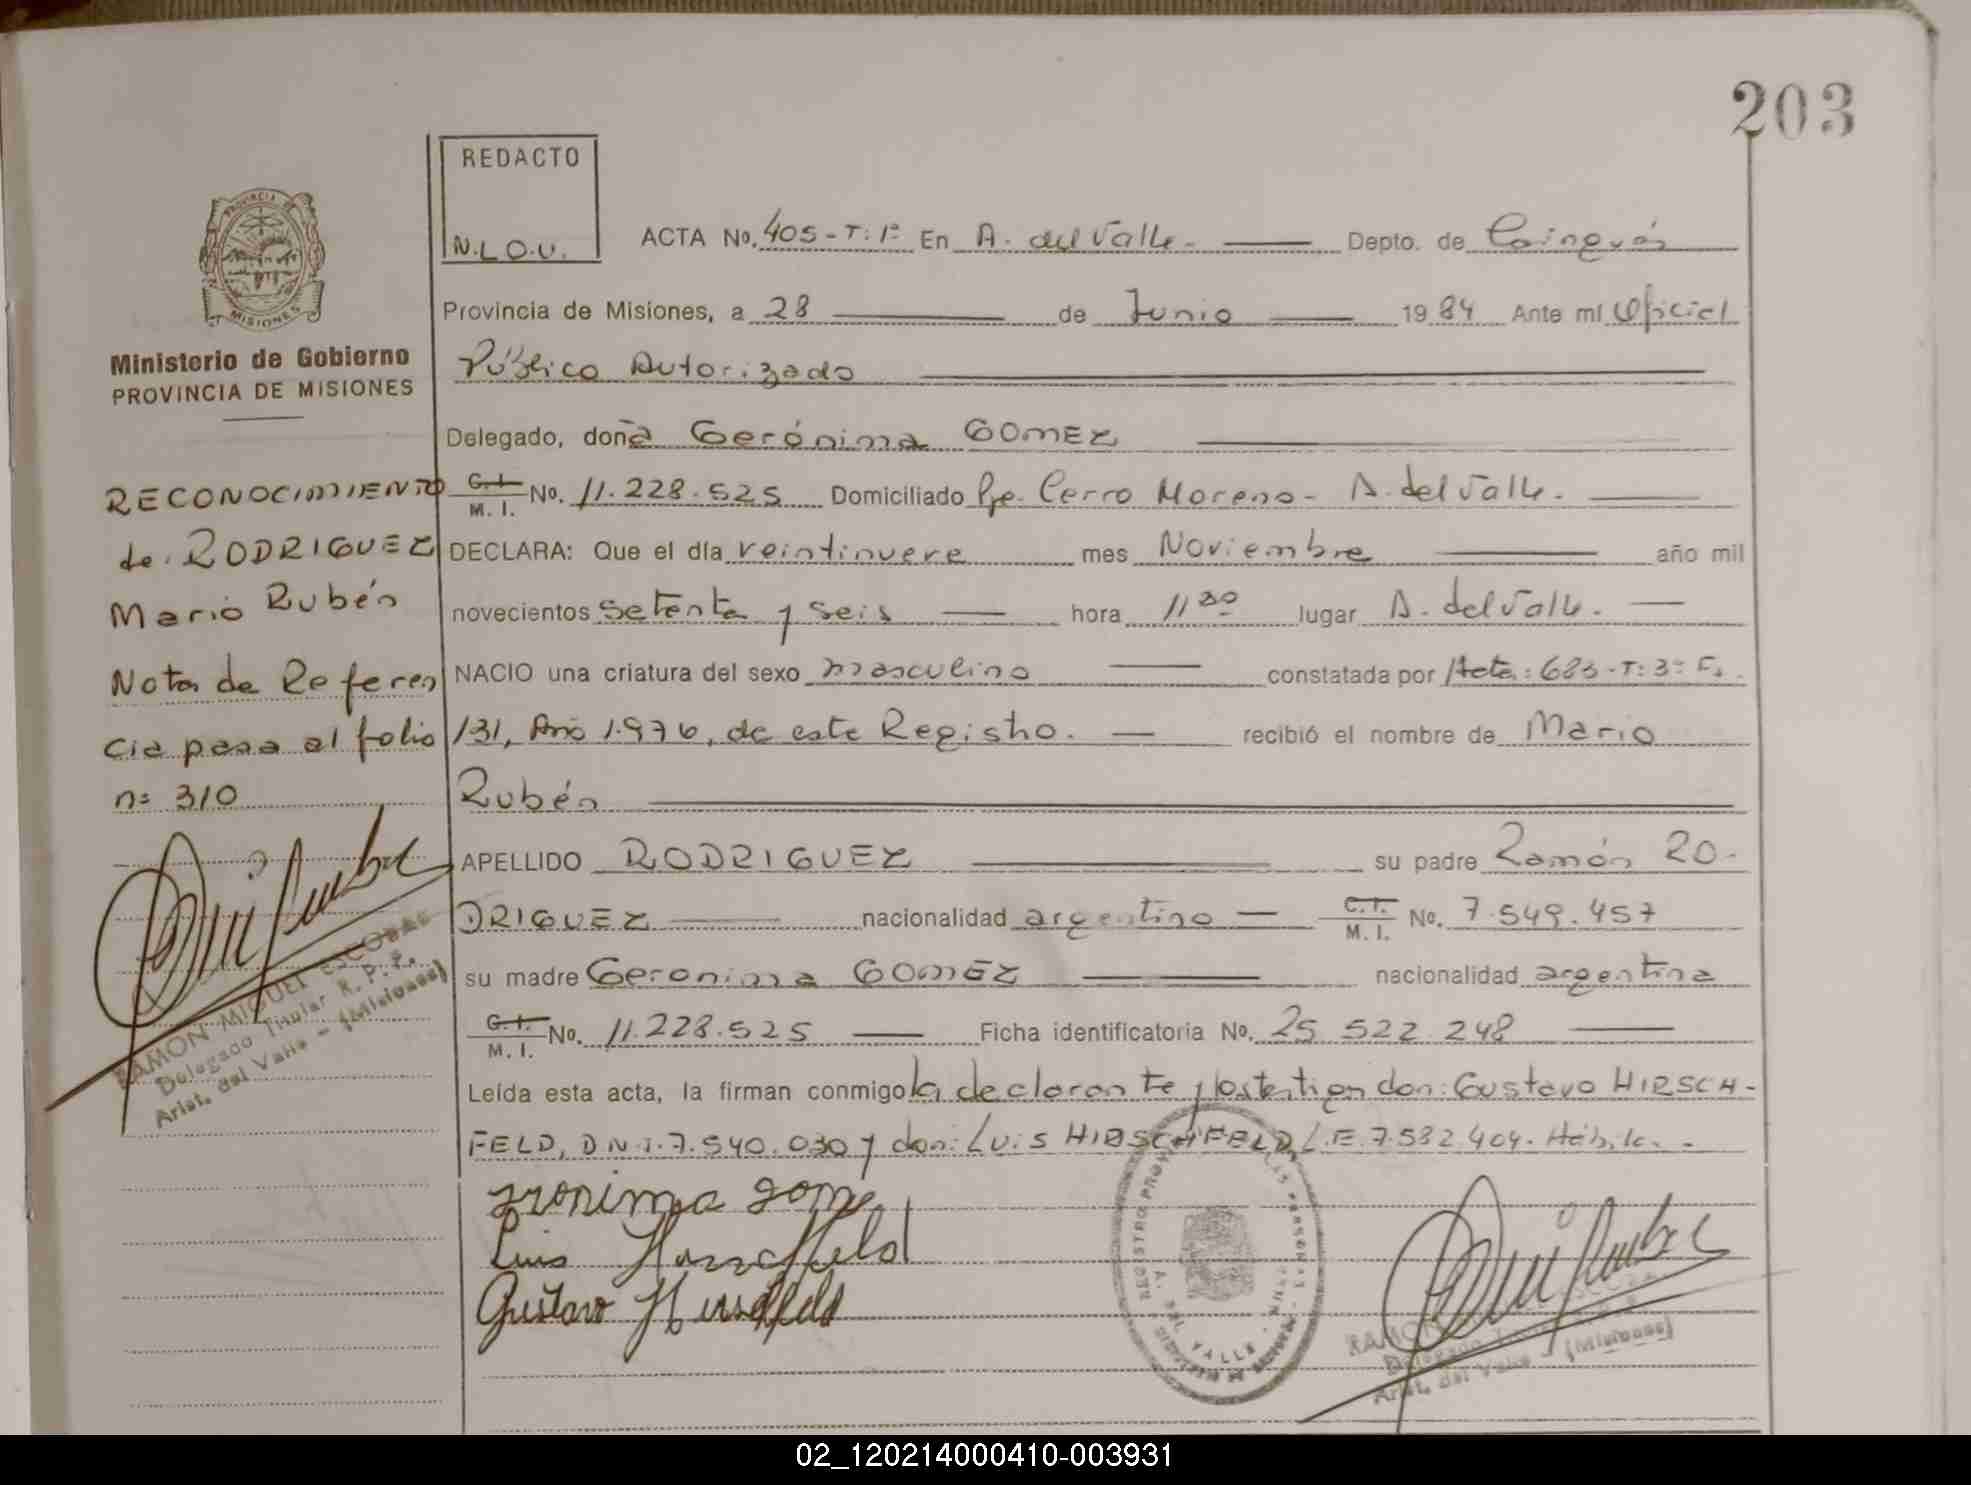 203
REDACTO
N.L.O.V.
PROVINCIA DE
MISIONES
Ministerio de Gobierno
PROVINCIA DE MISIONES
ACTA No. 405-T: 1º En A. del Valle. Depto. de Cainguás
Provincia de Misiones, a 28 de Junio 1984 Ante mí Oficial
Público Autorizado
Delegado, doña Gerónima GOMEZ
C.I. M.I. No. 11.228.525 Domiciliado Pje. Cerro Moreno - A. del Valle.
DECLARA: Que el día veintinueve mes Noviembre año mil
novecientos setenta y seis hora 11 30 lugar A. del Valle.
NACIO una criatura del sexo masculino constatada por Acta: 683-T: 3º Fº
131, Año 1.976, de este Registro. recibió el nombre de Mario
Rubén
APELLIDO RODRIGUEZ su padre Ramón RO-
DRIGUEZ nacionalidad argentino C.I. M.I. No. 7.549.457
su madre Geronima GOMEZ nacionalidad argentina
C.I. M.I. No. 11.228.525 Ficha identificatoria No. 25 522 248
Leída esta acta, la firman conmigo la declarante y los testigos don: Gustavo HIRSCH-
FELD, D.N.I. 7.540.030 y don: Luis HIRSCHFELD L.E. 7.582.404. Hábiles.-
RECONOCIMIENTO
de: RODRIGUEZ
Mario Rubén
Nota de Referen
cia pasa al folio
nº 310
RAMON MIGUEL ESCOBAR
Delegado Titular R. P. P.
Arist. del Valle - (Misiones)
Luis
Gustavo
A. DEL VALLE
RAMON
Delegado
Arist. del Valle - (Misiones)
02_120214000410-003931